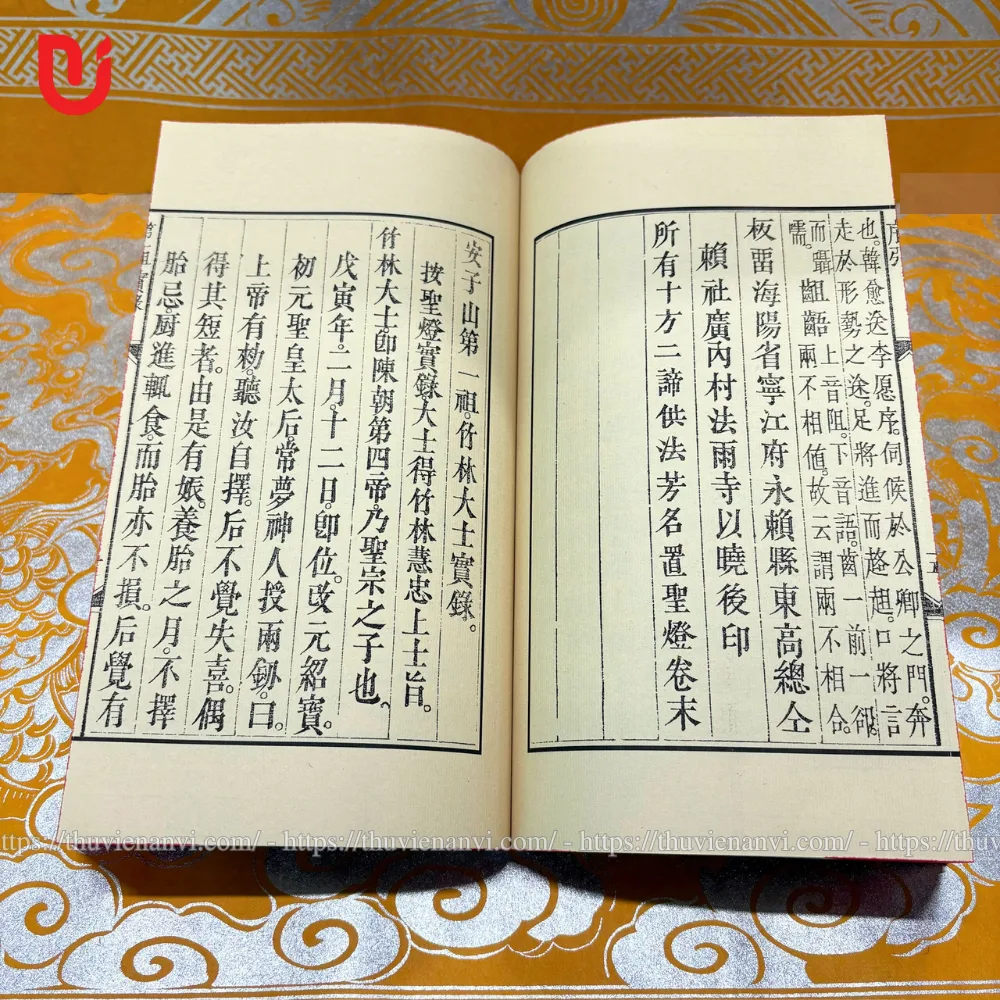 也。韓愈送李愿序。伺候於公卿之門。奔
走於形勢之途。足將進而趑趄。口將言
而囁
嚅。
齟齬
上音阻。下音語。齒一前一卻。
兩不相値。故云謂兩不相合。
板畱海陽省寧江府永賴縣東高總仝
賴社廣內村法雨寺以曉後印
所有十方二諦供法芳名置聖燈卷末
安子山第一祖。竹林大士實錄。
按聖燈實錄。大士得竹林慧忠上士旨。
竹林大士。卽陳朝第四帝。乃聖宗之子也。
戊寅年。二月。十二日。卽位。改元紹寶。
初元聖皇太后。常夢神人授兩劒。曰。
上帝有勑。聽汝自擇。后不覺失喜。偶
得其短者。由是有娠。養胎之月。不擇
胎忌。厨進輒食。而胎亦不損。后覺有
https://thuvienanvi.com/ - https://thuvienanvi.com/ - https://thuvienanvi.com/ - https://thuv